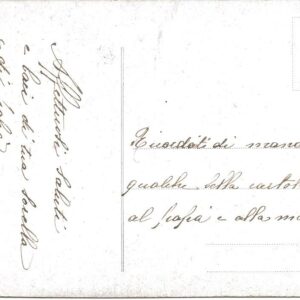 Affettuosi saluti
e baci di tua sorella
Ricordati di mand
qualche bella cartol
al papà e alla ma